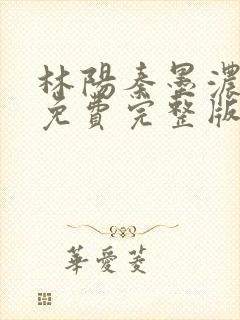 林陽秦墨濃
免費完整版
華愛菱